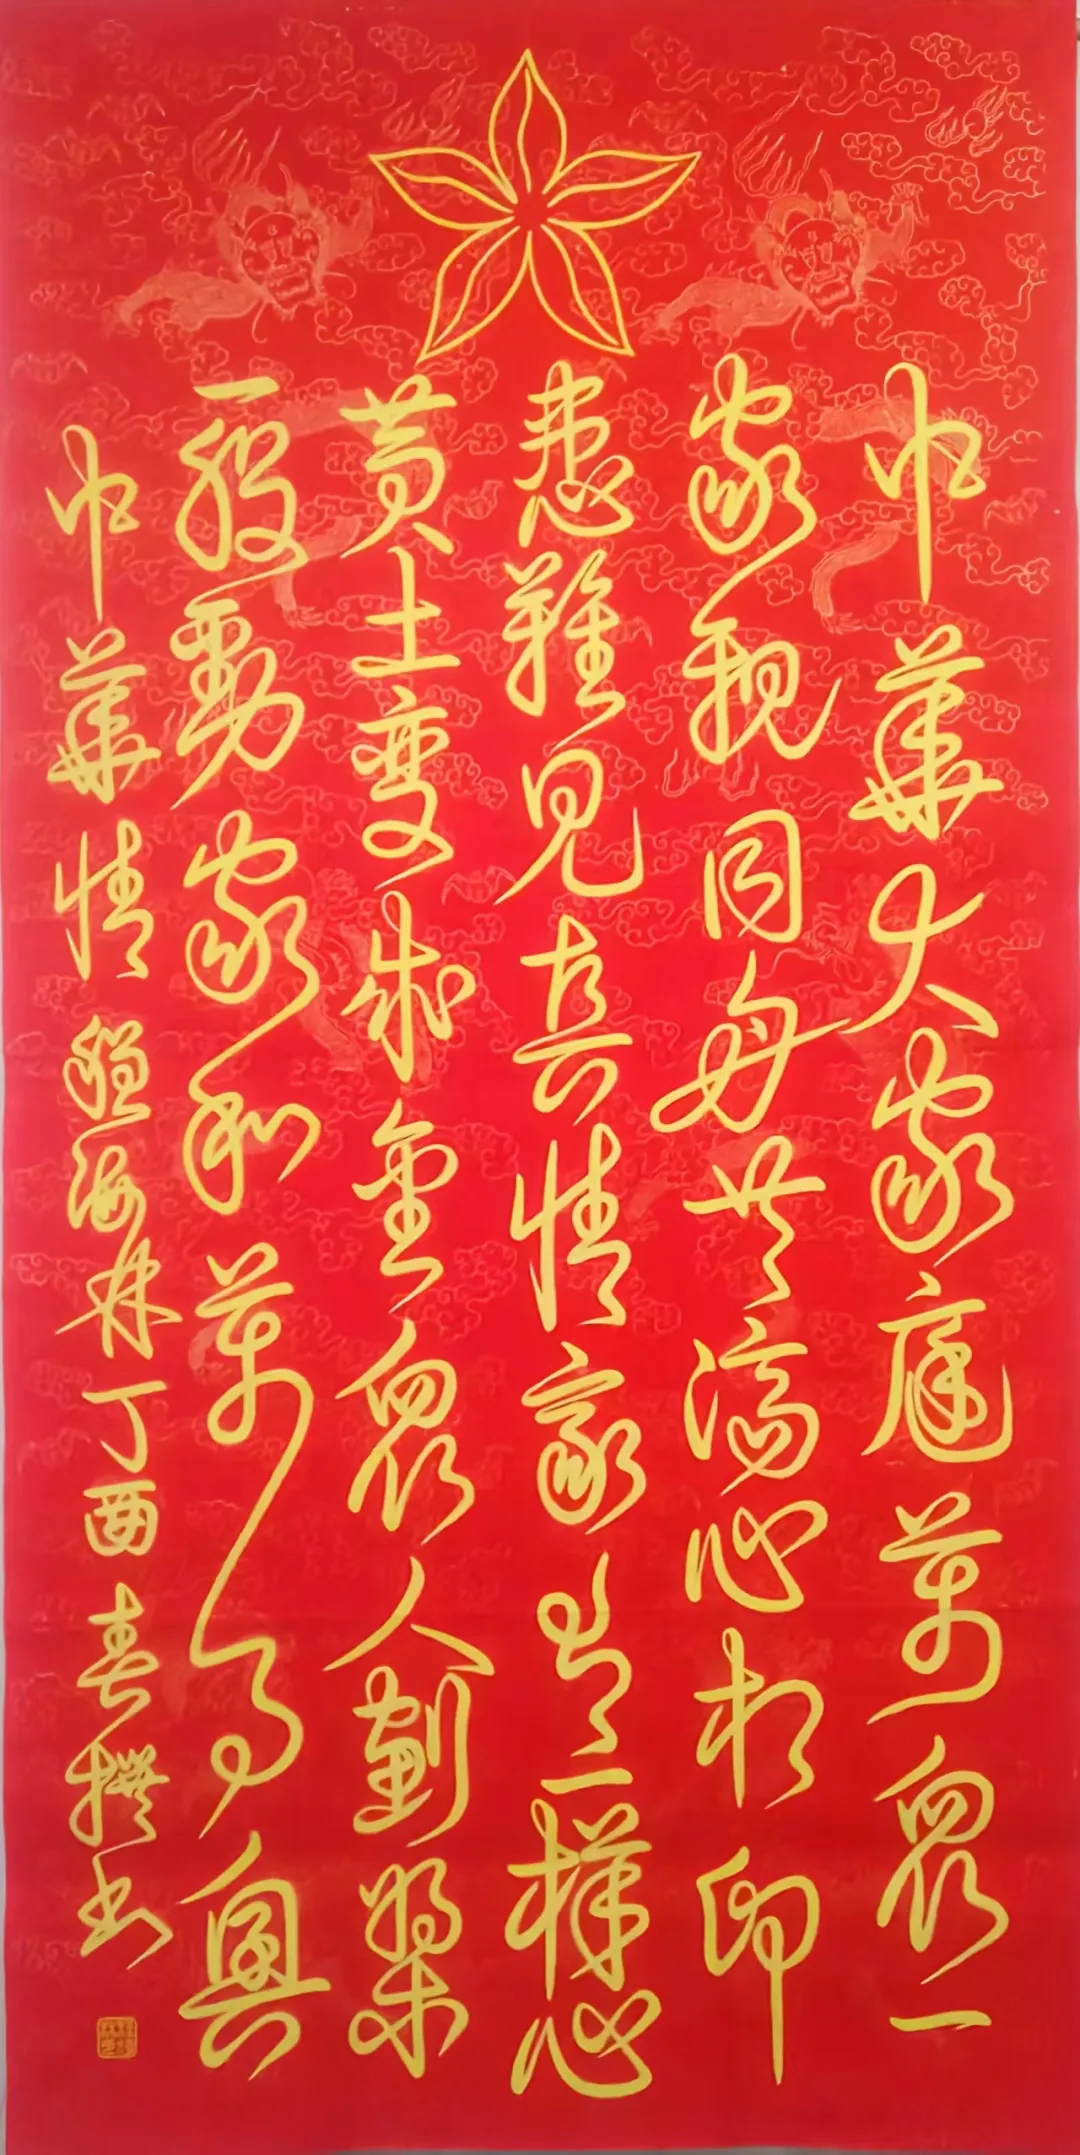 中華大家庭萬眾一
家親同舟共濟心相印
患難見真情一樣心
黃土變成金眾人劃槳
一般勁家和萬事興
中華情海林丁酉春撰書